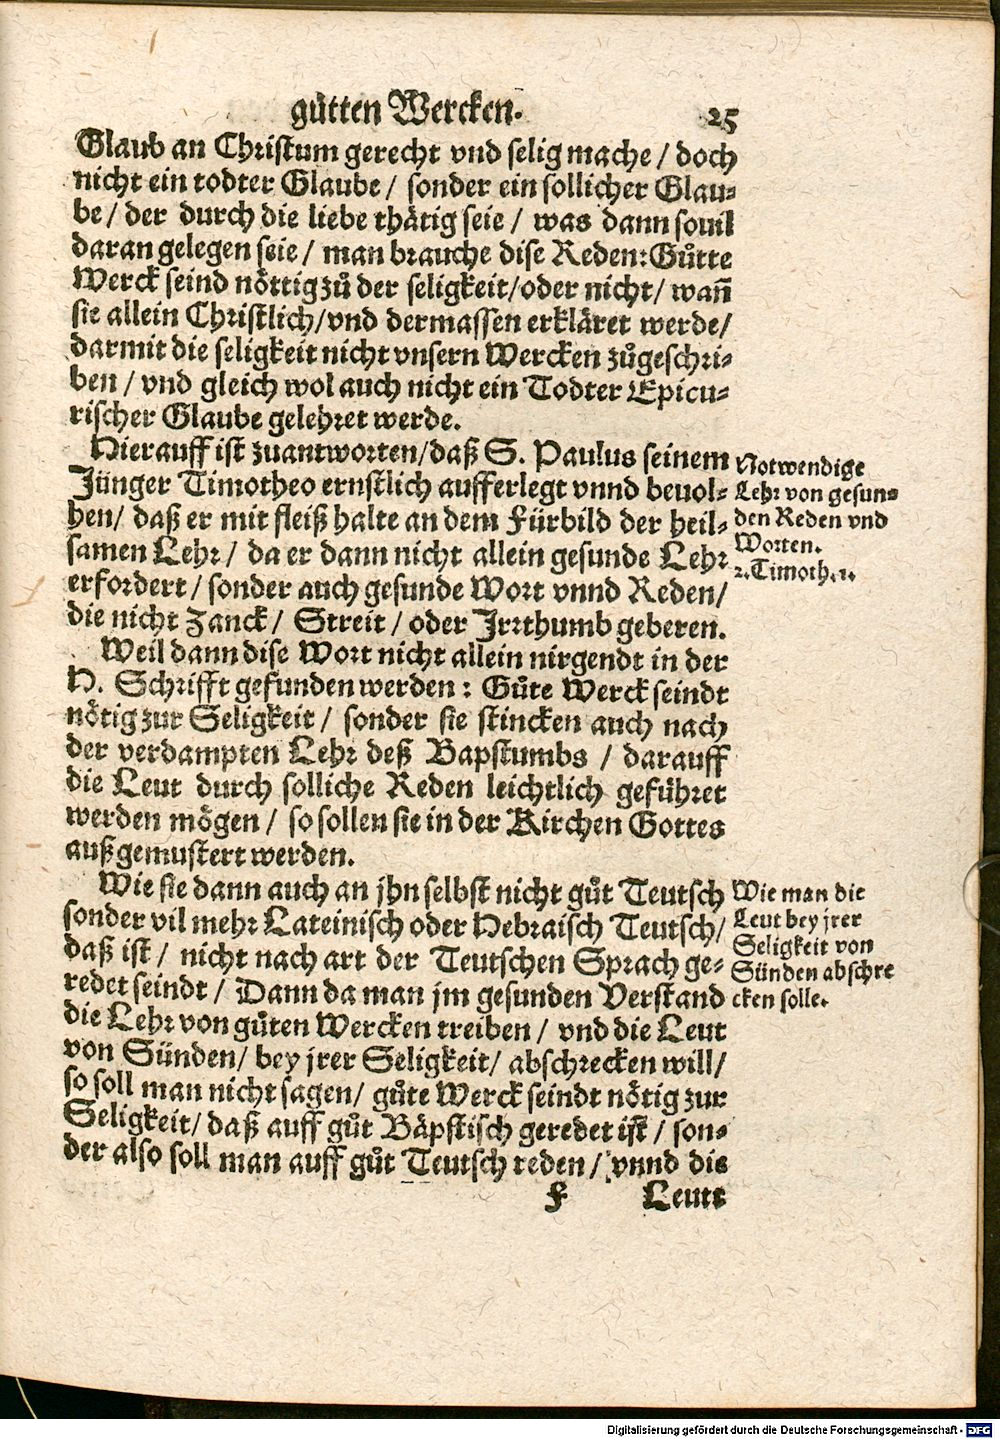 guͤtten Wercken. 25
Glaub an Christum gerecht vnd selig mache / doch
nicht ein todter Glaube / sonder ein sollicher Glau⸗
be / der durch die liebe thaͤtig seie / was dann souil
daran gelegen seie / man brauche dise Reden: Guͤtte
Werck seind noͤttig zuͦ der seligkeit/oder nicht/ wañ
sie allein Christlich/vnd dermassen erklaͤret werde/
darmit die seligkeit nicht vnsern Wercken zuͦgeschri⸗
ben / vnd gleich wol auch nicht ein Todter Epicu⸗
rischer Glaube gelehret werde.
Hierauff ist zuantworten/daß S. Paulus seinem
Jünger Timotheo ernstlich aufferlegt vnnd beuol⸗
hen/ daß er mit fleiß halte an dem Fürbild der heil⸗
samen Lehr / da er dann nicht allein gesunde Lehr
erfordert / sonder auch gesunde Wort vnnd Reden/
die nicht Zanck / Streit / oder Irrthumb geberen.
Notwendige
Lehr von gesun⸗
den Reden vnd
Worten.
2. Timoth. 1.
Weil dann dise Wort nicht allein nirgendt in der
H. Schrifft gefunden werden : Guͤte Werck seindt
noͤtig zur Seligkeit / sonder sie stincken auch nach
der verdampten Lehr deß Bapstumbs / darauff
die Leut durch solliche Reden leichtlich geführet
werden moͤgen / so sollen sie in der Kirchen Gottes
außgemustert werden.
Wie sie dann auch an jhn selbst nicht guͦt Teutsch
sonder vil mehr Lateinisch oder Hebraisch Teutsch/
daß ist / nicht nach art der Teutschen Sprach ge⸗
redet seindt / Dann da man jm gesunden Verstand
die Lehr von guͤten Wercken treiben / vnd die Leut
von Sünden/ bey jrer Seligkeit/ abschrecken will/
so soll man nicht sagen/ guͤte Werck seindt noͤtig zur
Seligkeit/ daß auff guͦt Baͤpstisch geredet ist / son⸗
der also soll man auff guͦt Teutsch reden / vnnd die
Wie man die
Leut bey jrer
Seligkeit von
Sünden abschre
cken solle.
F Leute
Digitalisierung gefördert durch die Deutsche Forschungsgemeinschaft - DFG